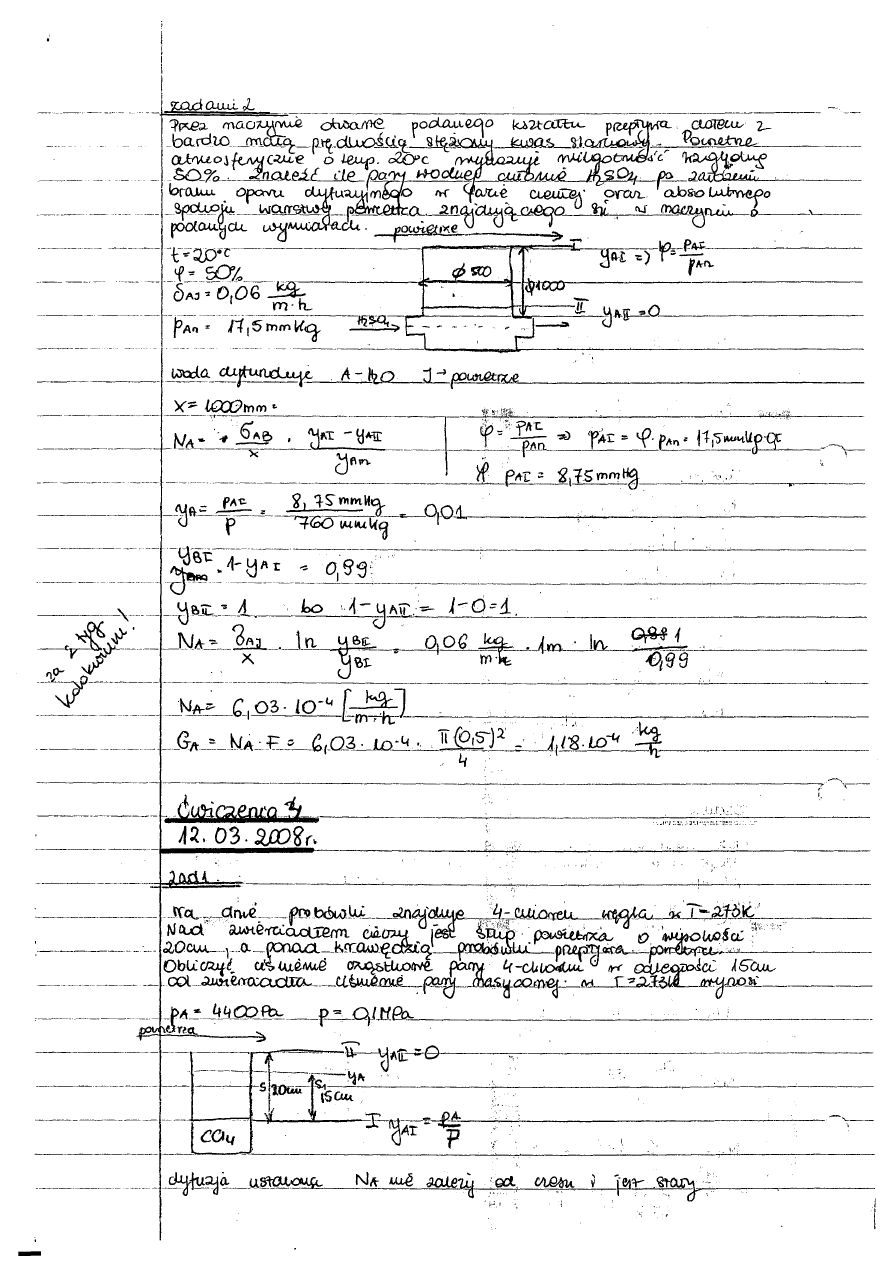 zadanie 2
Przez naczynie otwarte podanego kształtu przepływa dołem z
bardzo małą prędkością stężony kwas siarkowy. Powietrze
atmosferyczne o temp. 20°C wykazuje wilgotność względną
50%. Znaleźć ile pary wodnej chłonie H2SO4 po założeniu
braku oporu dyfuzyjnego w fazie ciekłej oraz absolutnego
spokoju warstwy powietrza znajdującego się w naczyniu o
podanych wymiarach.
powietrze
I
yAI => φ = pAI / pAn
t = 20°C
φ = 50%
δAJ = 0,06 kg / m·h
pAn = 17,5 mmHg
φ 500
φ1000
II yAII = 0
H2SO4
woda dyfunduje A - H2O J → powietrze
x = 1000mm =
NA = δAB / x · yAI - yAII / yBm
φ = pAI / pAn => pAI = φ · pAn = 17,5mmHg·
pAI = 8,75 mmHg
yA = pAI / p = 8,75 mmHg / 760 mmHg = 0,01
yBI = 1 - yAI = 0,99
yBII = 1 bo 1 - yAII = 1 - 0 = 1.
za 2 tyg kolokwium!
NA = δAJ / x · ln yBII / yBI = 0,06 kg / m·h · 1m · ln 1 / 0,99
NA = 6,03 · 10-4 [kg / m·h]
GA = NA · F = 6,03 · 10-4 · Π(0,5)2 / 4 = 1,18·10-4 kg / h
Ćwiczenia
12.03.2008r.
zad1.
Na dnie probówki znajduje 4-chlorek węgla w T=273K
Nad zwierciadłem cieczy jest słup powietrza o wysokości
20cm, a ponad krawędzią probówki przepływa powietrze.
Obliczyć ciśnienie cząstkowe pary 4-chlorku w odległości 15cm
od zwierciadła ciśnienie pary nasyconej w T=273K wynosi
pA = 4400Pa p = 0,1MPa
powietrze
II yAII = 0
yA
s 20cm
s1 15cm
I yAI = pA / P
CCl4
dyfuzja ustalona NA nie zależy od czasu i jest stały